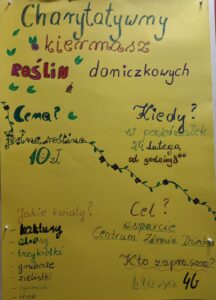 Charytatywny
kiermasz
Roślin doniczkowych
Cena?
Jedna roślina
10 zł
Kiedy?
w poniedziałek
24 lutego
od godziny 8⁰⁰
Jakie kwiaty?
- kaktusy
- aloesy
- trzykrotki
- grubosze
- zielistki
- inne
Cel?
wsparcie
Centrum Zdrowia Dziecka
Kto zaprasza?
4b